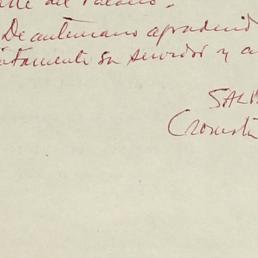 del Palacio.
De antemano agradecid
atamente su servidor y a
SALV
Cronist